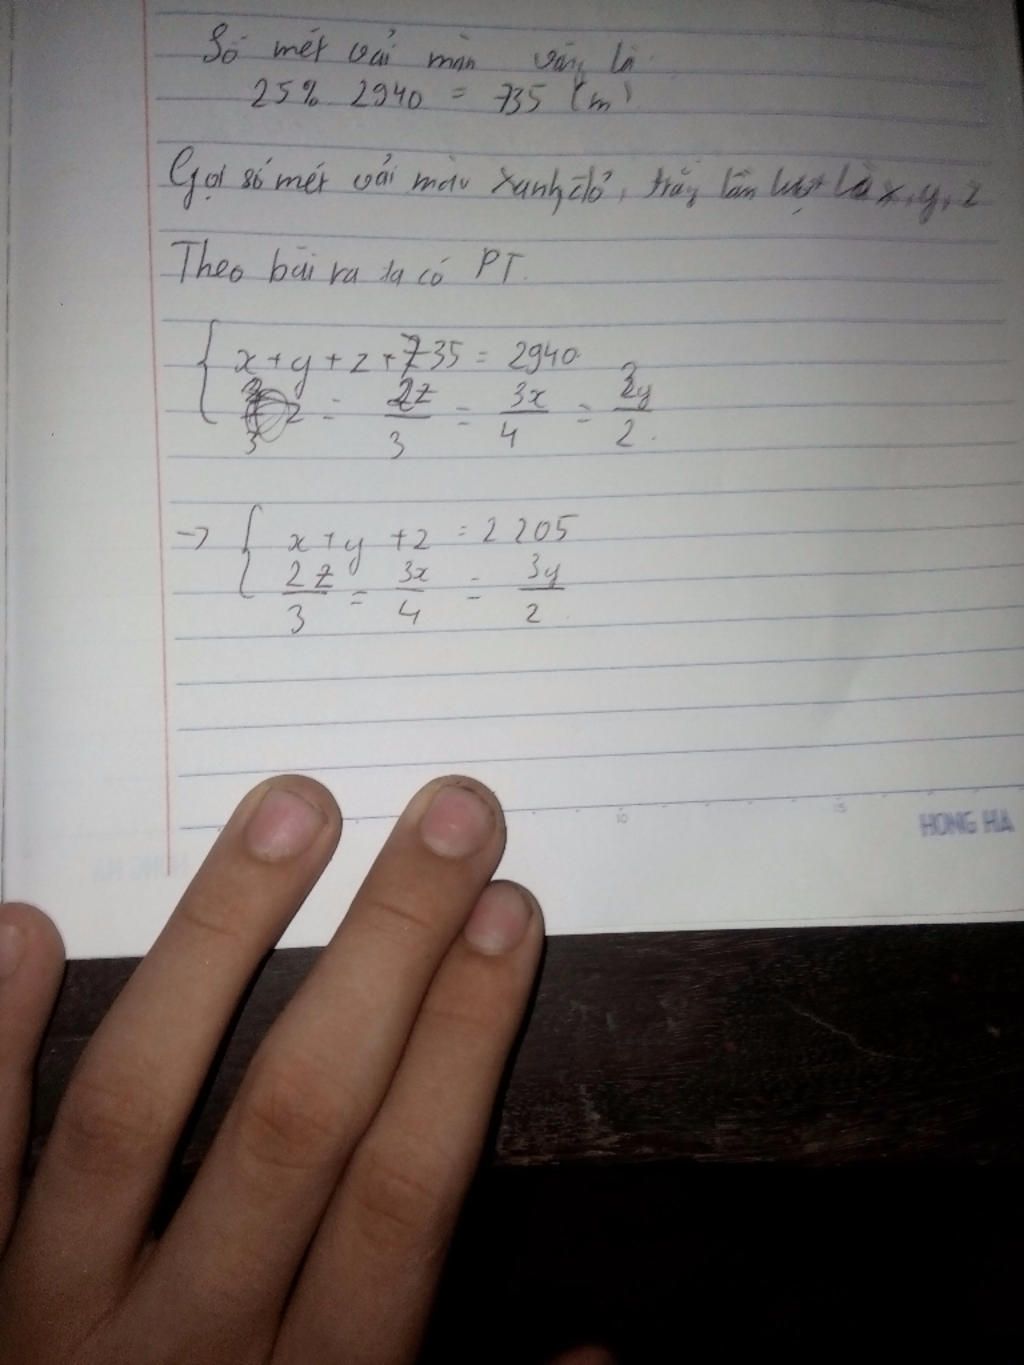 Số mét vải màn vàng là
25% 2940 = 735 (m)
Gọi số mét vải màu xanh, đỏ, trắng lần lượt là x, y, z
Theo bài ra ta có PT.
x + y + z + 735 = 2940
= 2z/3 = 3x/4 = 3y/2.
→ { x + y + z = 2205
2z/3 = 3x/4 = 3y/2.
10 15
HONG HA